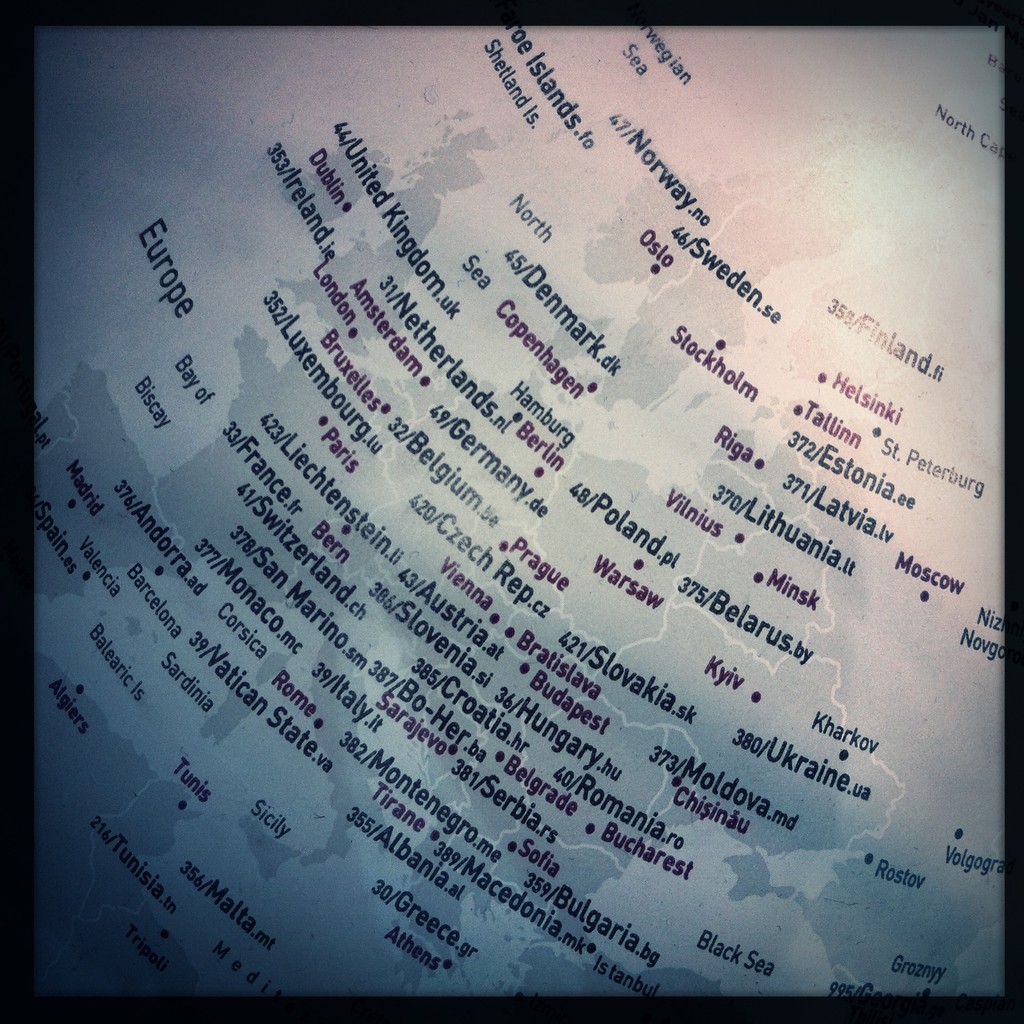 Faroe Islands.fo
Shetland Is.
Norwegian
Sea
North Cap
47/Norway.no
Oslo
46/Sweden.se
Stockholm
358/Finland.fi
Helsinki
Tallinn
St. Petersburg
372/Estonia.ee
Riga
371/Latvia.lv
370/Lithuania.lt
Vilnius
Moscow
Minsk
375/Belarus.by
North
Sea
45/Denmark.dk
Copenhagen
Hamburg
Berlin
44/United Kingdom.uk
353/Ireland.ie
Dublin
London
Amsterdam
31/Netherlands.nl
Bruxelles
352/Luxembourg.lu
32/Belgium.be
49/Germany.de
48/Poland.pl
Warsaw
Europe
Bay of
Biscay
Paris
33/France.fr
423/Liechtenstein.li
41/Switzerland.ch
Bern
420/Czech Rep.cz
Prague
Vienna
43/Austria.at
421/Slovakia.sk
Bratislava
Budapest
36/Hungary.hu
386/Slovenia.si
385/Croatia.hr
387/Bo-Her.ba
Sarajevo
378/San Marino.sm
377/Monaco.mc
376/Andorra.ad
Madrid
Spain.es
Portugal.pt
Valencia
Barcelona
Balearic Is
Corsica
Sardinia
39/Vatican State.va
39/Italy.it
Rome
382/Montenegro.me
381/Serbia.rs
Belgrade
40/Romania.ro
Bucharest
373/Moldova.md
Chişinău
380/Ukraine.ua
Kyiv
Kharkov
Tirane
355/Albania.al
389/Macedonia.mk
Sofia
359/Bulgaria.bg
30/Greece.gr
Athens
Istanbul
Black Sea
Rostov
Volgograd
Groznyy
995/Georgia.ge
Caspian
Algiers
Tunis
Sicily
216/Tunisia.tn
356/Malta.mt
Tripoli